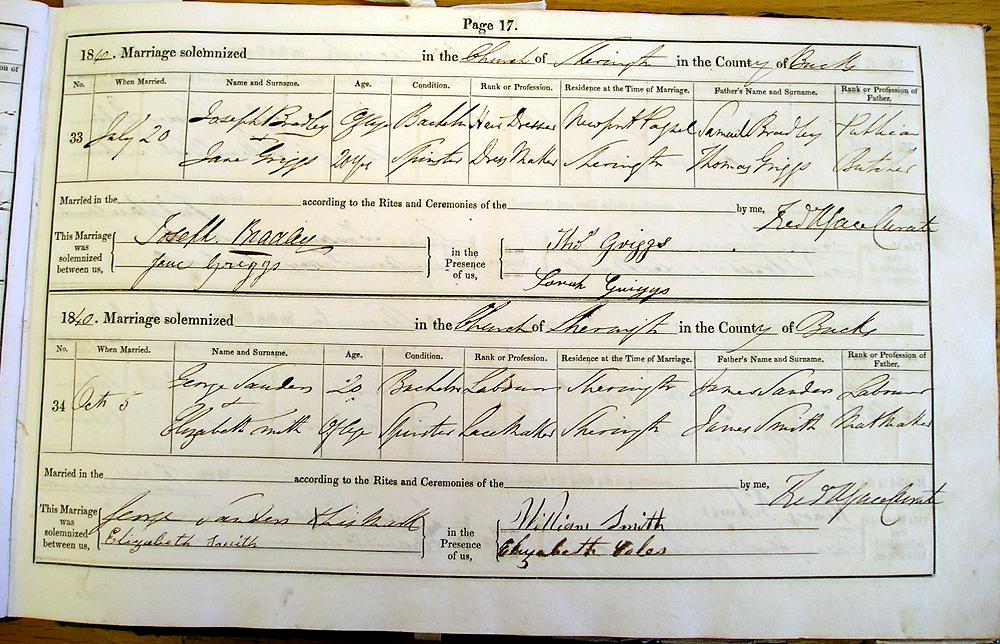 Page 17.
1840. Marriage solemnized in the Church of Sherington in the County of Bucks
No. When Married. Name and Surname. Age. Condition. Rank or Profession. Residence at the Time of Marriage. Father's Name and Surname. Rank or Profession of Father.
33 July 20 Joseph Bradley Of Age Bachelor Hair Dresser Newport Pagnel Samuel Bradley Publican
Jane Griggs 20 yrs Spinster Dress Maker Sherington Thomas Griggs Butcher
Married in the according to the Rites and Ceremonies of the by me, Curate
This Marriage was solemnized between us, Joseph Bradley in the Presence of us, Thos Griggs
Jane Griggs Sarah Griggs
1840. Marriage solemnized in the Church of Sherington in the County of Bucks
No. When Married. Name and Surname. Age. Condition. Rank or Profession. Residence at the Time of Marriage. Father's Name and Surname. Rank or Profession of Father.
34 Octr 5 George Sanders 20 Bachelor Labourer Sherington James Sanders Labourer
+
Elizabeth Smith Of Age Spinster Lace Maker Sherington James Smith Mat Maker
Married in the according to the Rites and Ceremonies of the by me, Curate
This Marriage was solemnized between us, George Sanders X his Mark in the Presence of us, William Smith
Elizabeth Smith Elizabeth Coles